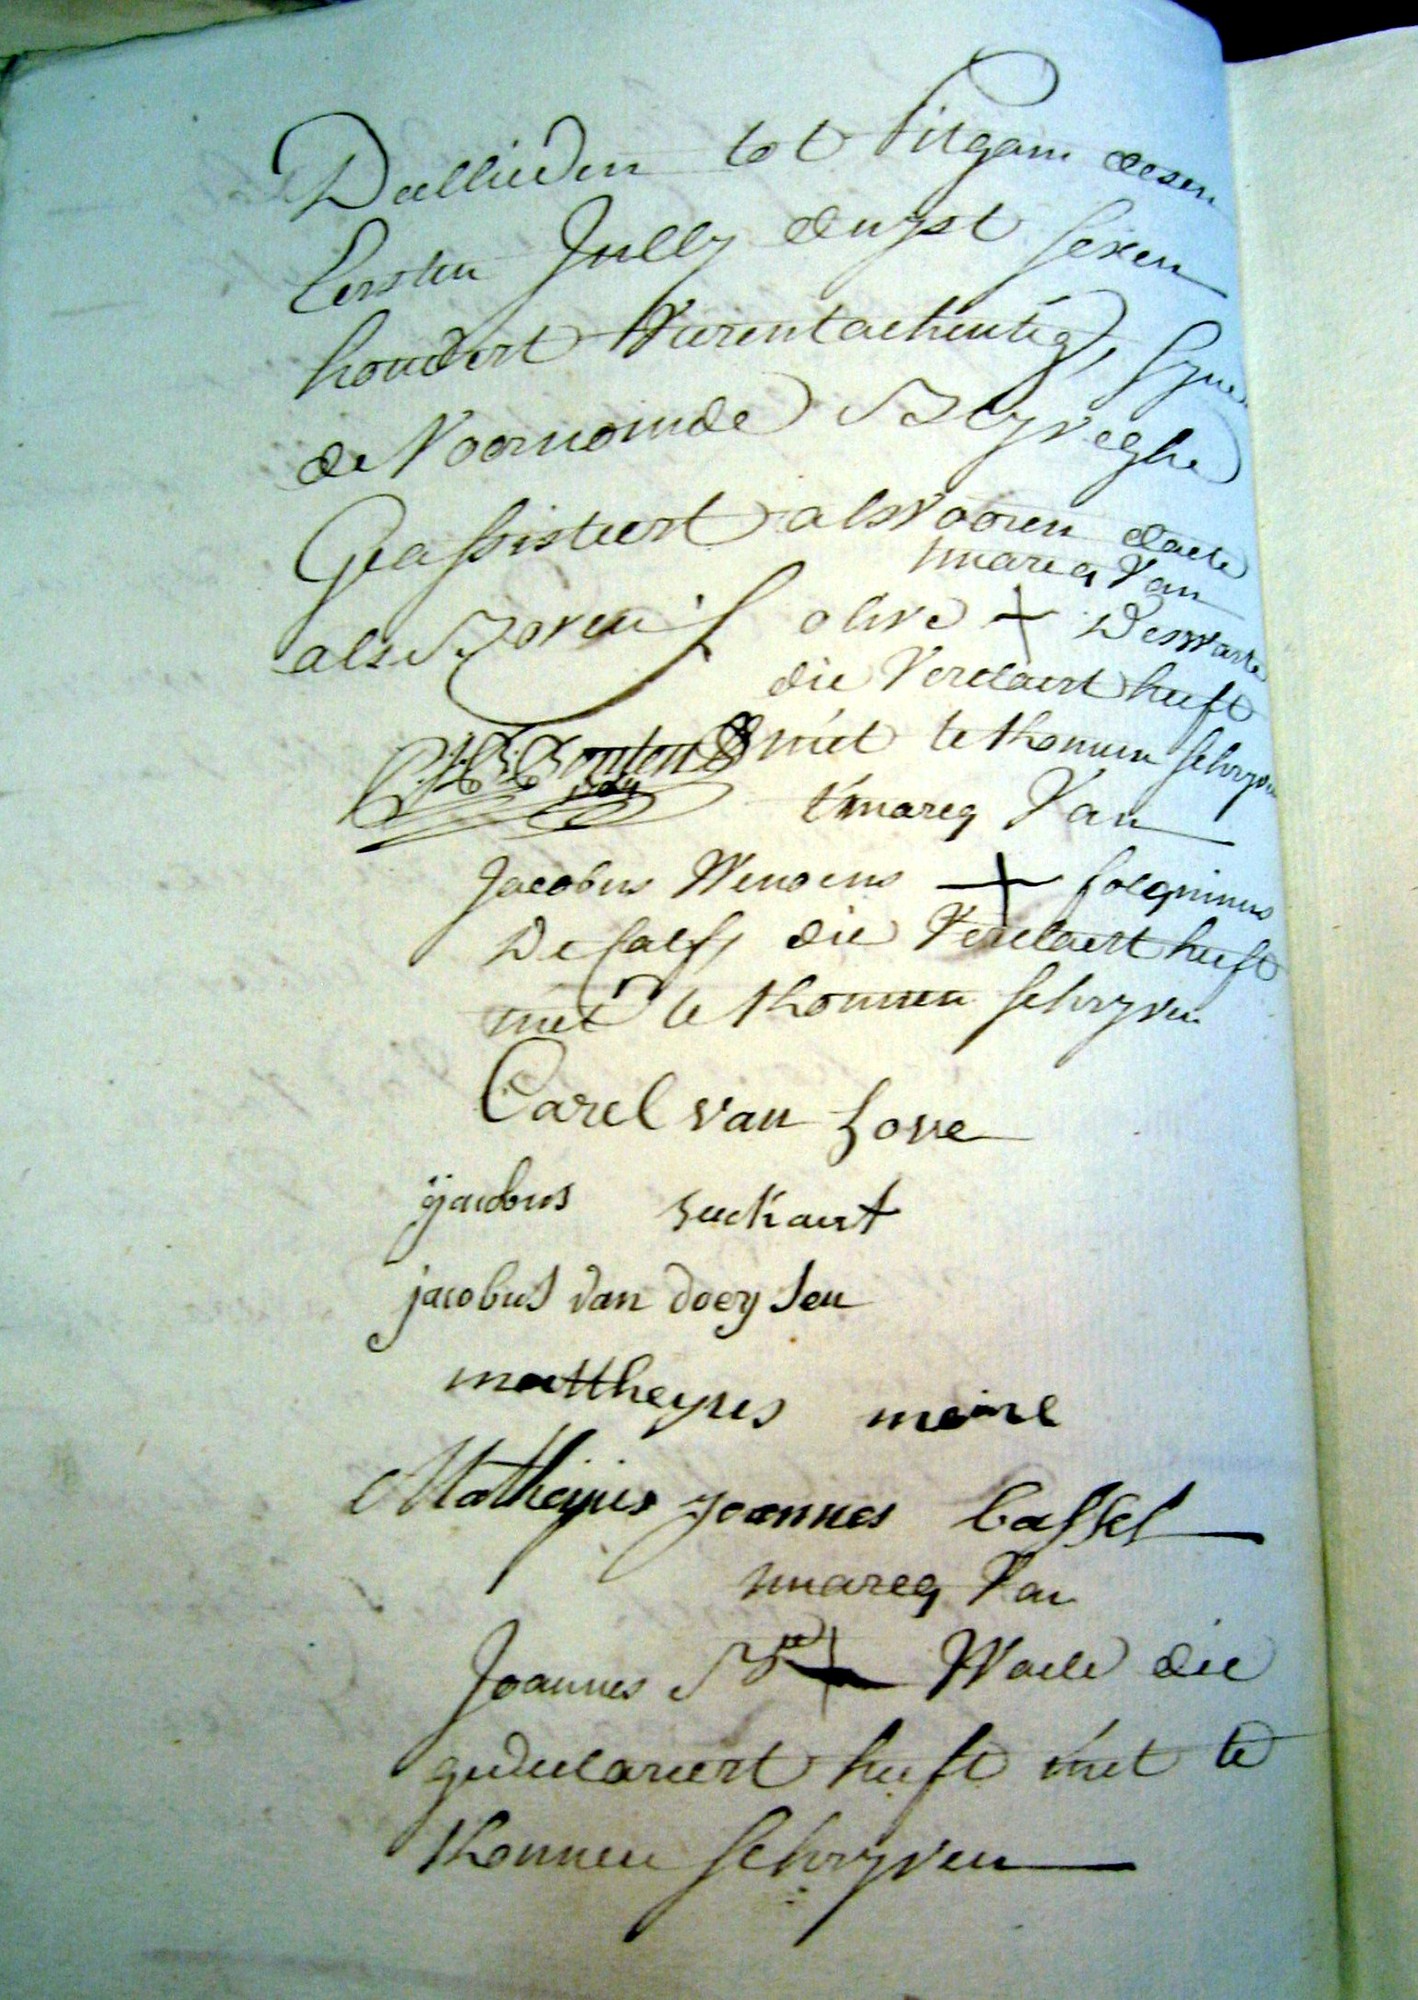 Deellieden tot Pitgam desen
Eersten Jully duyst seven
hondert vierentachentig,
de Voornomde Blyveghe
Geassisteert alsvooren date
als Boven
tmarcq Van
olive + Deswarte
die Verclaert heeft
niet te konnen schryven
tmarcq Van
Jacobus Wenoens + folquinus
De calf, die Verclaert heeft
niet te konnen schryven
Carel van hove
ijacobus
jacobus van doeysen
mattheyus meire
Matheyus joannes Cassel
tmarcq Van
Joannes Bte + Waele die
gedeclareert heeft niet te
konnen schryven